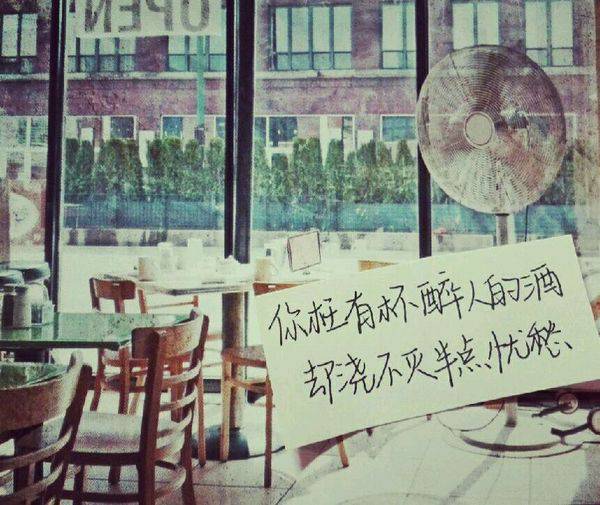 OPEN
你枉有杯醉人的酒
却浇不灭半点忧愁